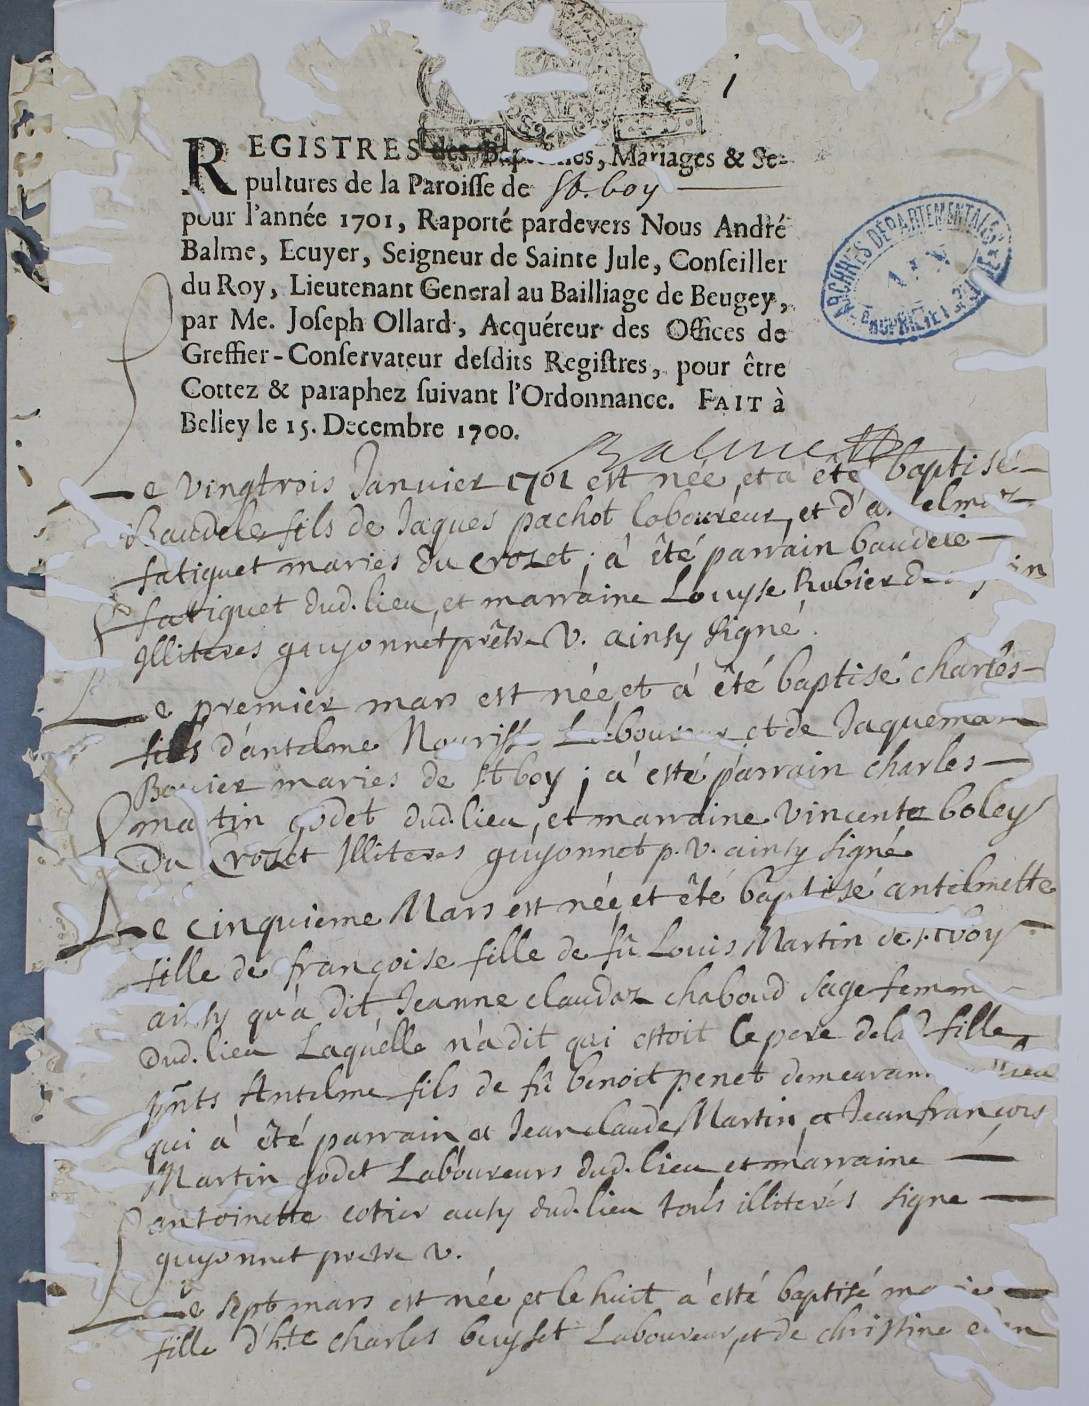 1
REGISTRES des Baptêmes, Mariages & Se-
pultures de la Paroisse de St. boy
pour l'année 1701, Raporté pardevers Nous André
Balme, Ecuyer, Seigneur de Sainte Jule, Conseiller
du Roy, Lieutenant General au Bailliage de Beugey,
par Me. Joseph Ollard, Acquéreur des Offices de
Greffier-Conservateur desdits Registres, pour être
Cottez & paraphez suivant l'Ordonnance. FAIT à
Belley le 15. Decembre 1700.
Balme
ARCHIVES DÉPARTEMENTALES
PROPRIÉTÉ PUBLIQUE
Le vingtrois Janvier 1701 est née et a êté baptisé
Baudele fils de Jaques pachot laboureur, et d'
fatiquet mariés du crozet; à êté parrain baudele
fatiquet dud. lieu, et marraine Louyse Rubier
Illiteres guyonnet prêtre v. ainsy signé.
Le premier mars est née et à êté baptisé charles
fils d'antelme Nouriss Laboureur et de Jaquema
Bouier mariés de St boy; a esté parrain charles
martin godet dud. lieu, et marraine vincente boley
Du Crozet Illiteres guyonnet p. v. ainsy signé
Le cinquieme Mars est née et êté baptisé antelmette
fille de françoise fille de fû Louis Martin de st boy
ainsy qu'a dit Jeanne claudaz chaboud sage femm
dud. lieu Laquelle n'a dit qui estoit le pere de lad fille
pñts Antelme fils de fû benoit penet demeurant lieu
qui à êté parrain et Jean claude Martin et Jean françois
Martin godet Laboureurs dud. lieu et marraine
antoinette cotier ausy dud. lieu touts illiterés signe
guyonnet pretre v.
Le sept mars est née et le huit à esté baptisé marie
fille d'h.te charles beysset Laboureur, et de christine